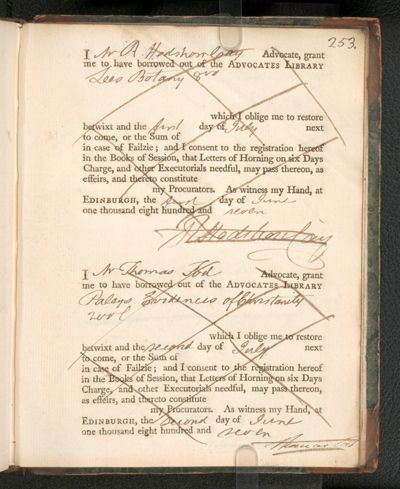 253.
I Mr R Hodshon Cay Advocate, grant
me to have borrowed out of the ADVOCATES LIBRARY
Lees Botany 8vo
which I oblige me to restore
betwixt and the first day of July next
to come, or the Sum of
in case of Failzie; and I consent to the registration hereof
in the Books of Session, that Letters of Horning on six Days
Charge, and other Executorials needful, may pass thereon, as
effeirs, and thereto constitute
my Procurators. As witness my Hand, at
EDINBURGH, the first day of June
one thousand eight hundred and seven
R Hodshon Cay
I Mr Thomas Tod Advocate, grant
me to have borrowed out of the ADVOCATES LIBRARY
Paleys Evidences of Christianity
2 vol
which I oblige me to restore
betwixt and the second day of July next
to come, or the Sum of
in case of Failzie; and I consent to the registration hereof
in the Books of Session, that Letters of Horning on six Days
Charge, and other Executorials needful, may pass thereon,
as effeirs, and thereto constitute
my Procurators. As witness my Hand, at
EDINBURGH, the Second day of June
one thousand eight hundred and seven
Thomas Tod